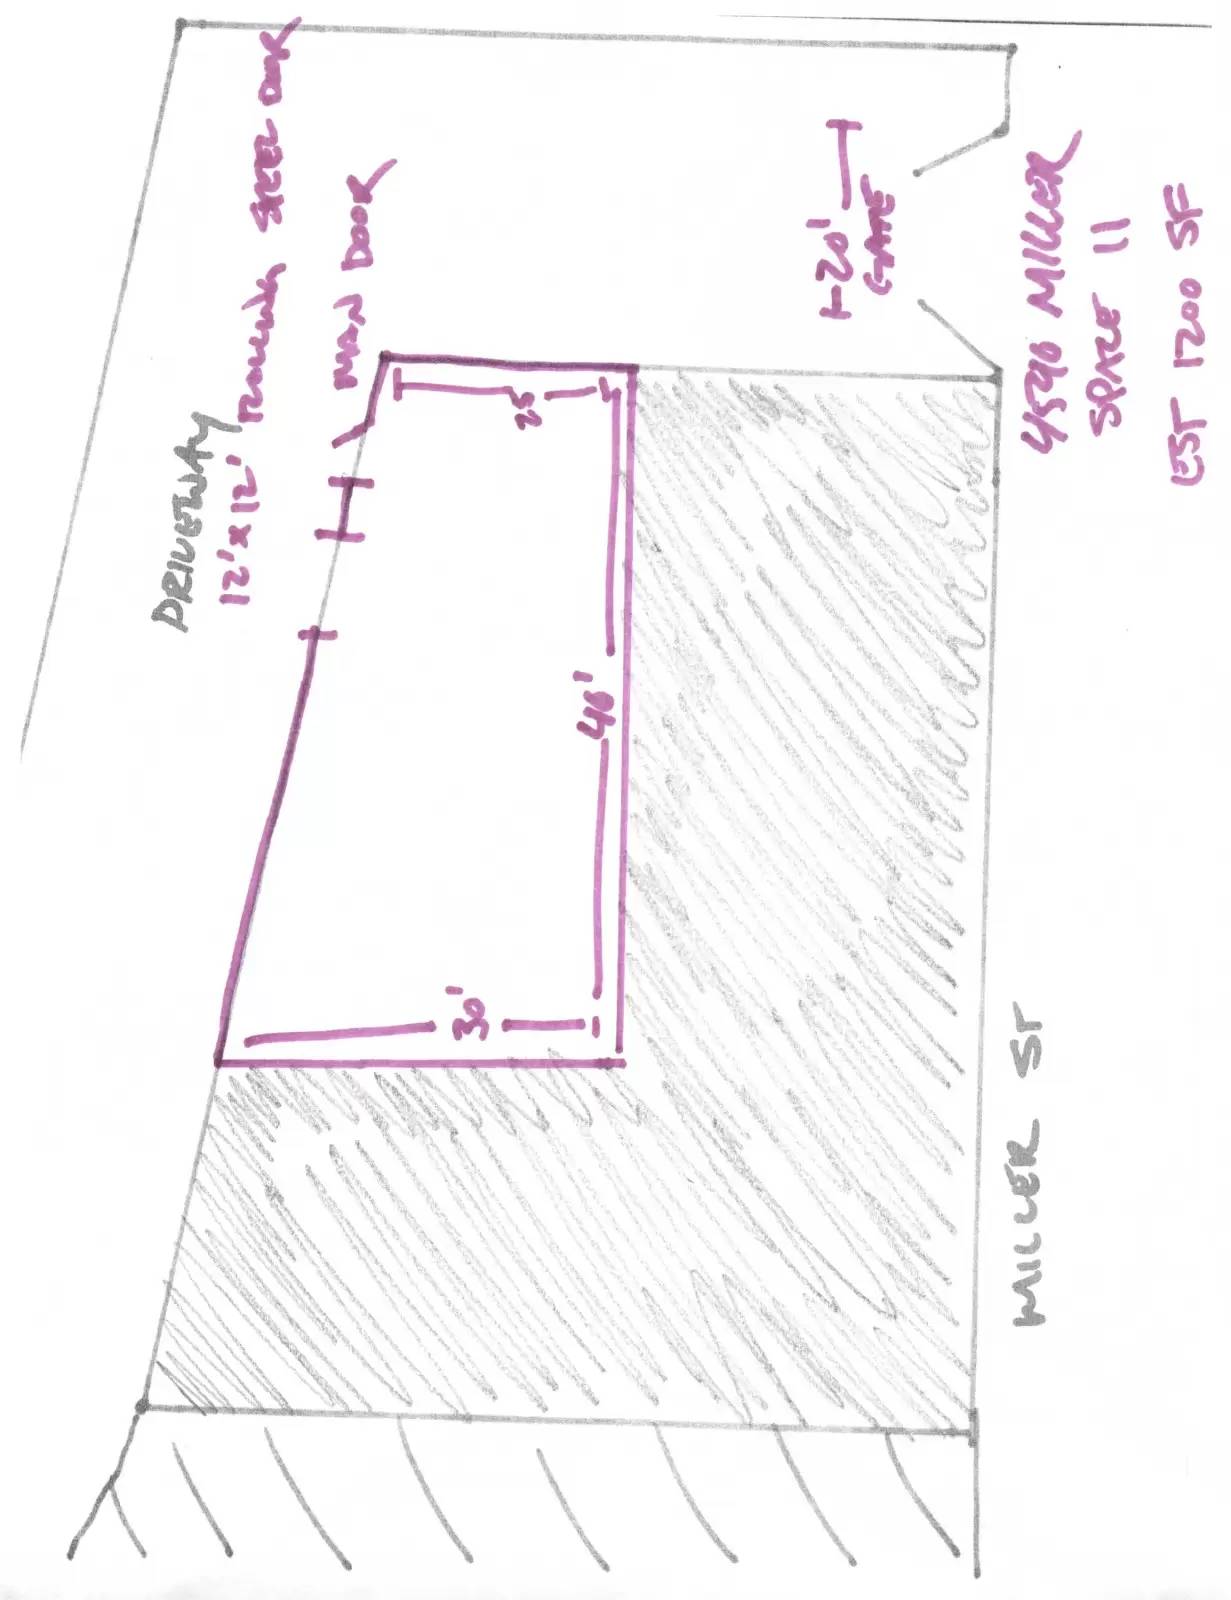 DRIVEWAY
12'x12' ROLLING STEEL DOOR
MAN DOOR
25
40'
30'
20'
GATE
MILLER ST
MILLER
SPACE 11
EST 1200 SF